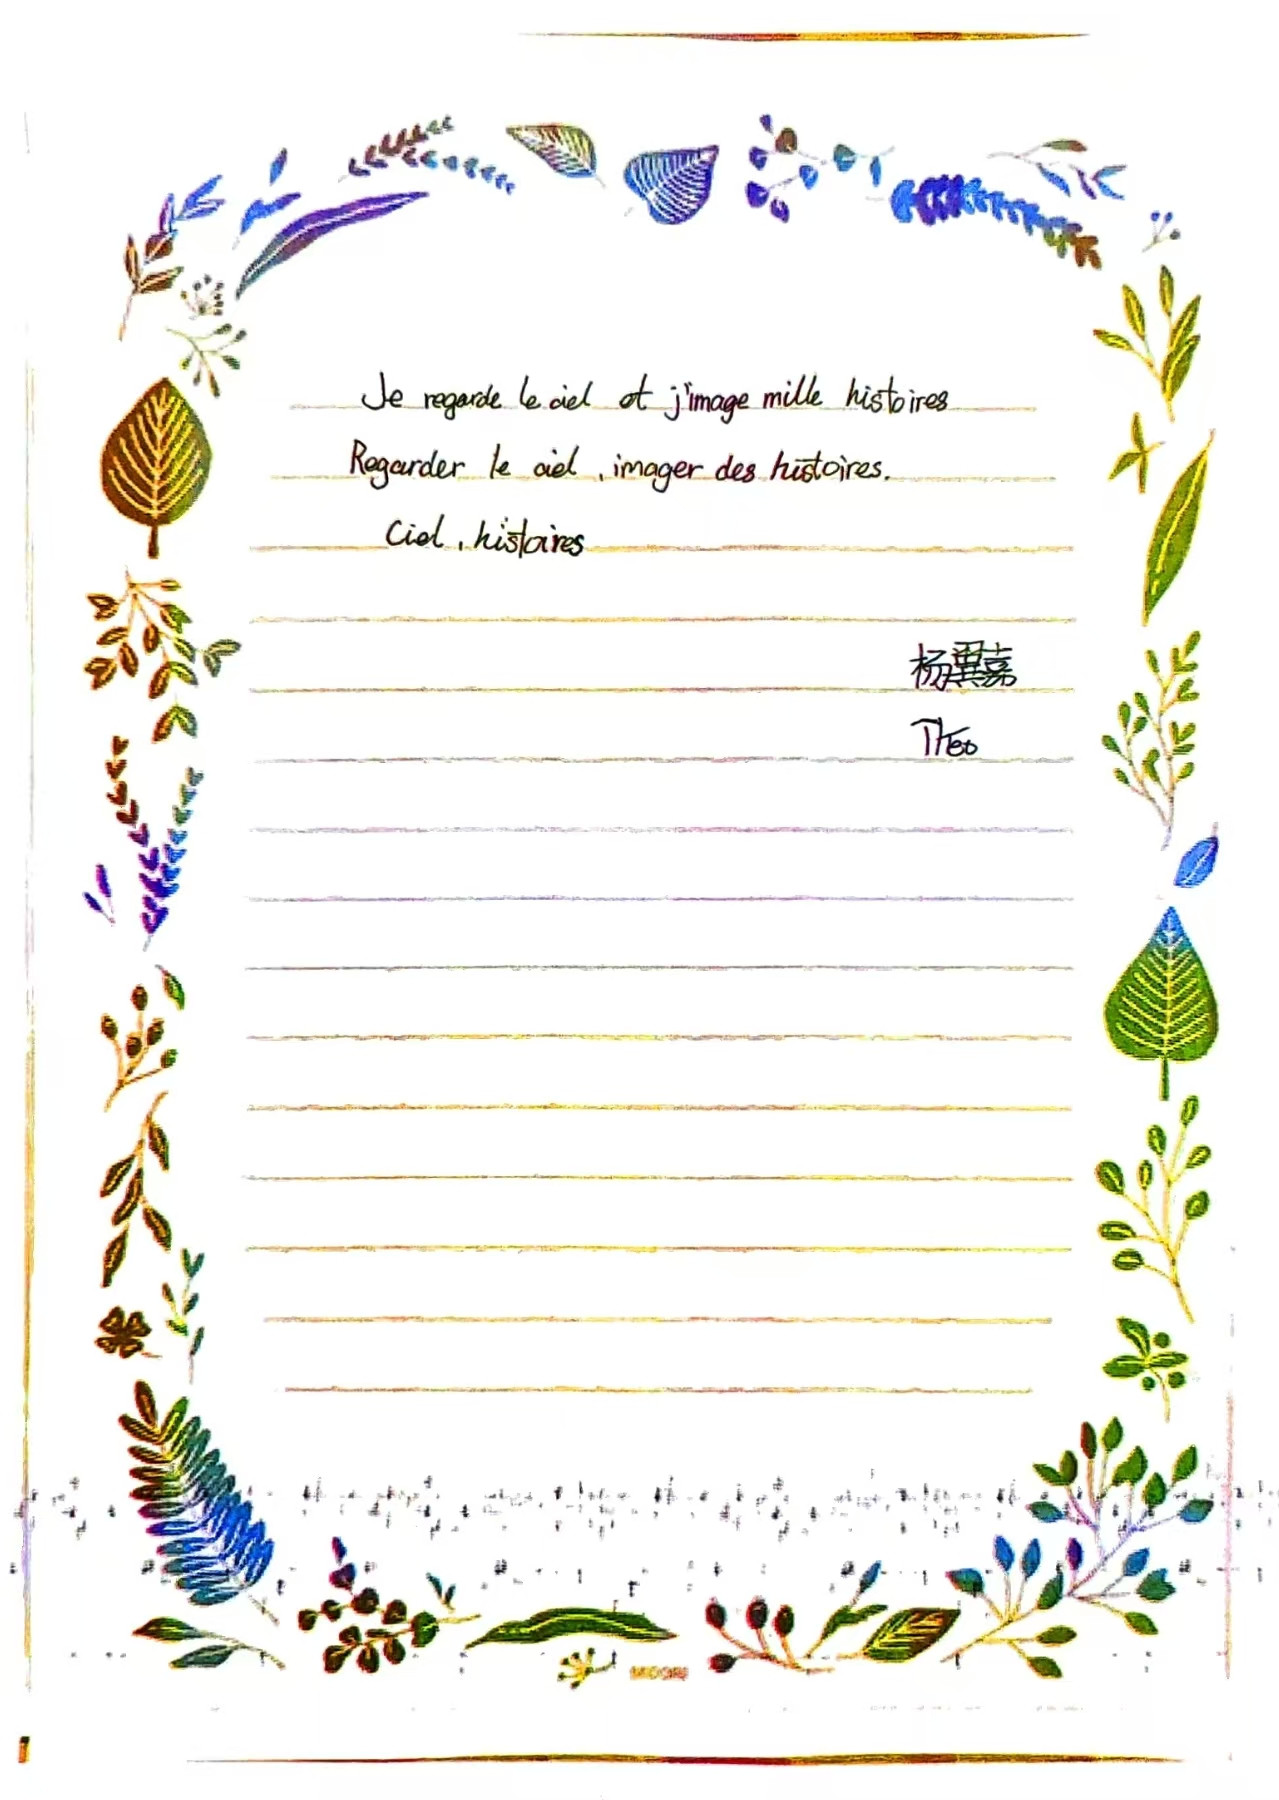 Je regarde le ciel et j'image mille histoires
Regarder le ciel, imager des histoires.
Ciel, histoires
杨翼嘉
Theo
MIDORI